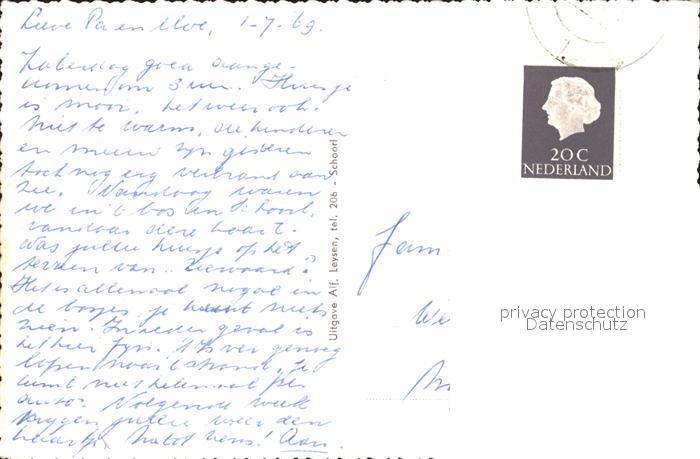 Lieve Pa en Moe, 1-7-69.
Zaterdag goed aange-
komen om 3 uur. Huisje
is mooi, het weer ook.
Niet te warm, de kinderen
en zijn gisteren
toch nog erg verbrand aan
zee. Vandaag waren
we in 't bos in Schoorl,
vandaar deze kaart.
Was jullie huisje op het
terrein van
Het is allemaal nogal in
de bosjes je kunt niets
zien. In ieder geval is
het hier fijn. 't Is ver genoeg
lopen naar 't strand. Je
kunt niet helemaal per
auto. Volgende week
krijgen jullie weer een
kaartje. Nu tot ziens!
Uitgave Alf. Leysen, tel. 206 - Schoorl
20 C
NEDERLAND
Fam
We
privacy protection
Datenschutz